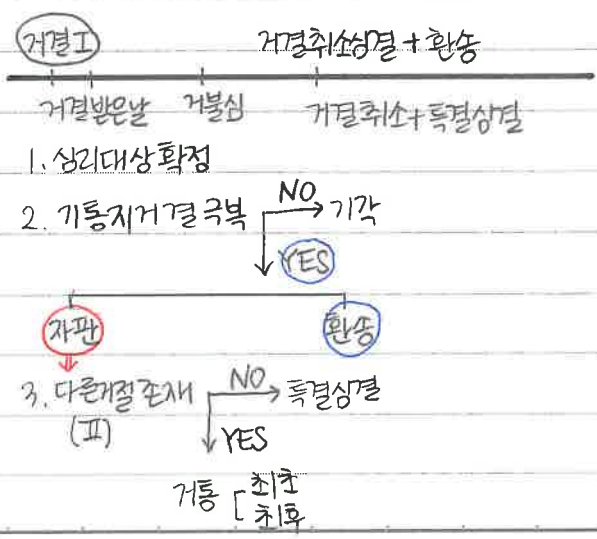 거결I 거결취소심결 + 환송
거결받은날 거불심 거결취소+특결심결
1. 심리대상확정
2. 기통지거결극복 NO 기각
YES
자판 환송
3. 다른거절존재 NO 특결심결
(II) YES
거통 [ 최초
최후